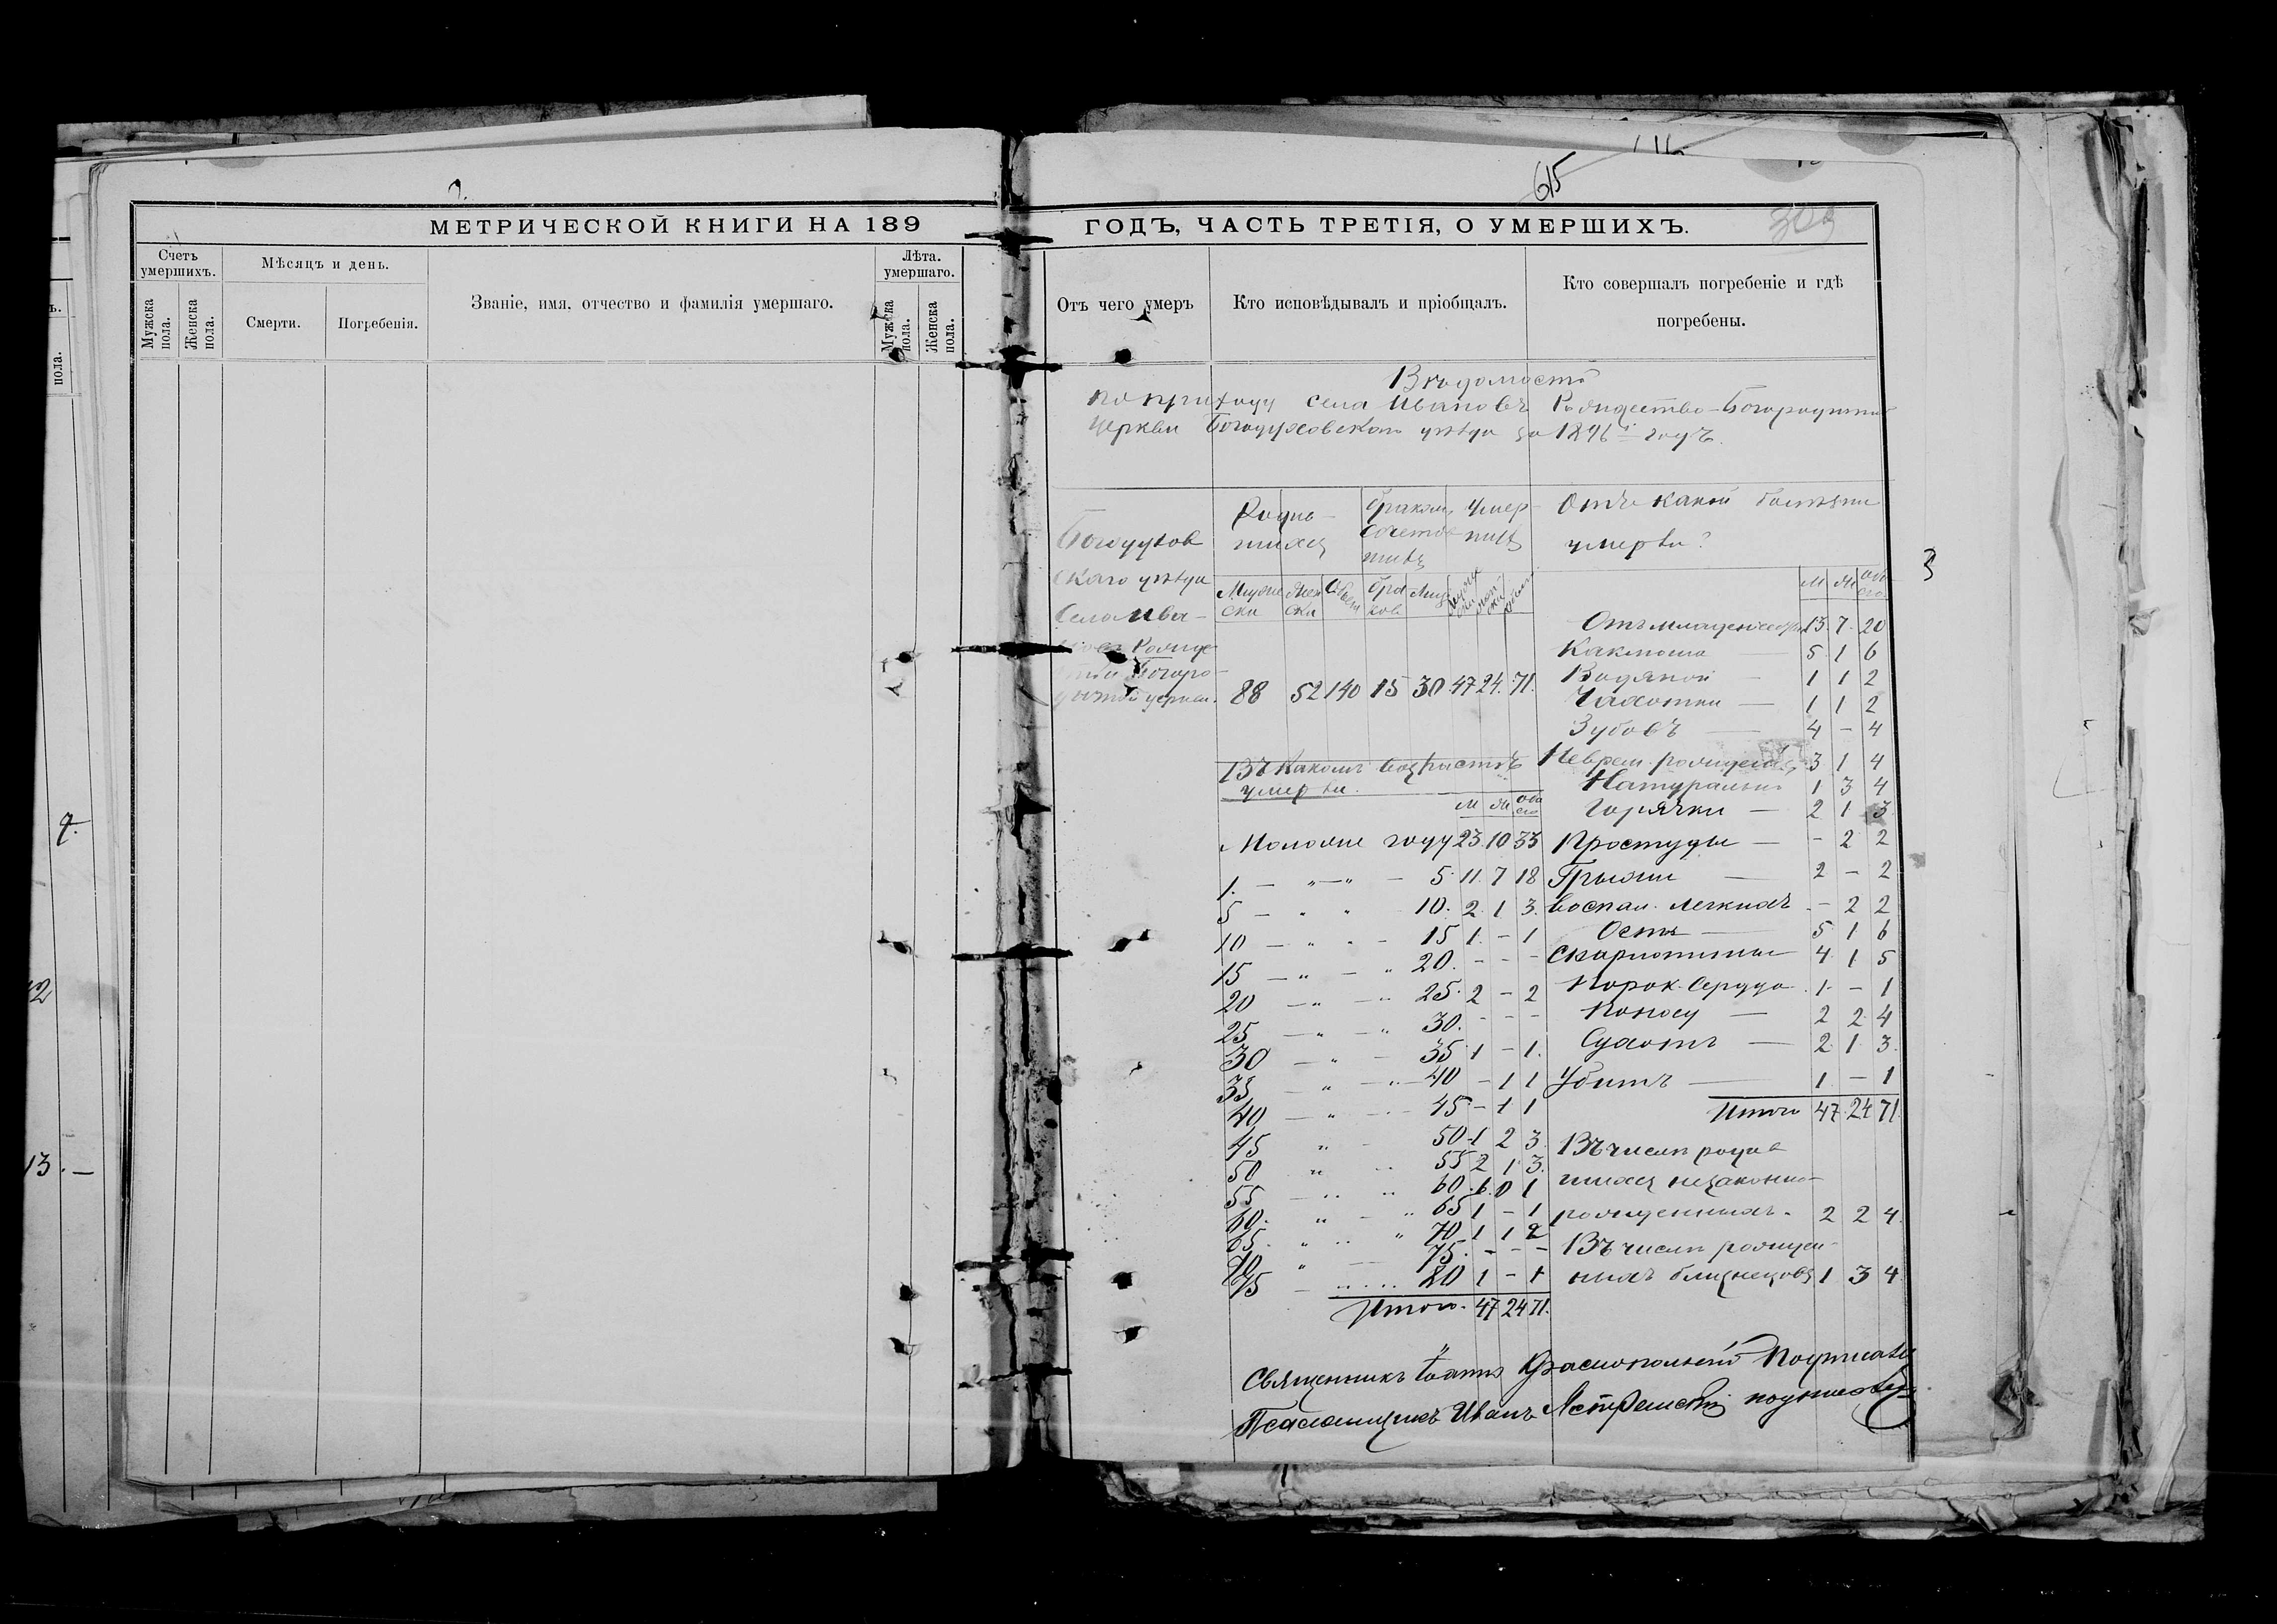 615
МЕТРИЧЕСКОЙ КНИГИ НА 189
Счетъ умершихъ.
Мужска пола.
Женска пола.
Мѣсяцъ и день.
Смерти.
Погребенія.
Званіе, имя, отчество и фамилія умершаго.
Лѣта. умершаго.
Мужска пола.
Женска пола.
ГОДЪ, ЧАСТЬ ТРЕТІЯ, О УМЕРШИХЪ.
Отъ чего умеръ
Кто исповѣдывалъ и пріобщалъ.
Кто совершалъ погребеніе и гдѣ
погребены.
Вѣдомость
по приходу села Ивановъ Рождество-Богородичной
церкви Богодуховскаго уѣзда за 1896й годъ.
Богодухов
скаго уѣзда
Села Ива-
Рожде
Богоро
церкви.
Родив-
шихся
Бракомъ
сочетав
шихся
Умер-
шихъ
Отъ какой болѣзни
умерли?
Мужес
ски
Жен
ски
Обоего
Бра
ковъ
Лицъ
88 52 140 15 30 47 24 71.
М Ж Обо его
Отъ младенческ 13. 7. 20
Коклюша — 5 1 6
Водяной — 1 1 2
Чахотки — 1 1 2
Зубовъ — 4 - 4
Неврем. рожден 3 1 4
Натурально 1 3 4
Горячки — 2 1 3
Простуды — - 2 2
Грыжи — 2 - 2
Воспал. легкихъ - 2 2
Оспы — 5 1 6
Скарлатины 4 1 5
Порок. сердца 1 - 1
Поносу — 2 2 4
Сухотъ — 2 1 3.
Убитъ — 1 - 1
Итого 47 24 71
Въ числѣ родив
шихся незаконно-
рожденныхъ. 2 2 4.
Въ числѣ рожден-
ныхъ близнецовъ 1 3 4
Въ какомъ возрастѣ
умерли.
М Ж Обо его
Моложе году 23 10 33
1. — " — " — 5. 11. 7 18
5 — " " 10. 2 1 3.
10 — " " — 15 1. - 1
15 — " — " 20. - - -
20 — " — " 25. 2 - 2
25 — " — " 30. - - -
30 — " — 35. 1 - 1.
35 — " — " 40 - 1 1
40 — " — 45 - 1 1
45 " — 50 1 2 3.
50 " " 55 2 1 3.
55 — " " 60 . 1
60. " — " 65 1 - 1
65. " " " 70 1 1 2
70 " — 75. - - -
75 — " 80 1 - 1
Итого. 47 24 71.
Священникъ Іоаннъ Краснопольскій подписался
Псаломщикъ Иванъ Ястремскій подписался
3
7.
12
13. —